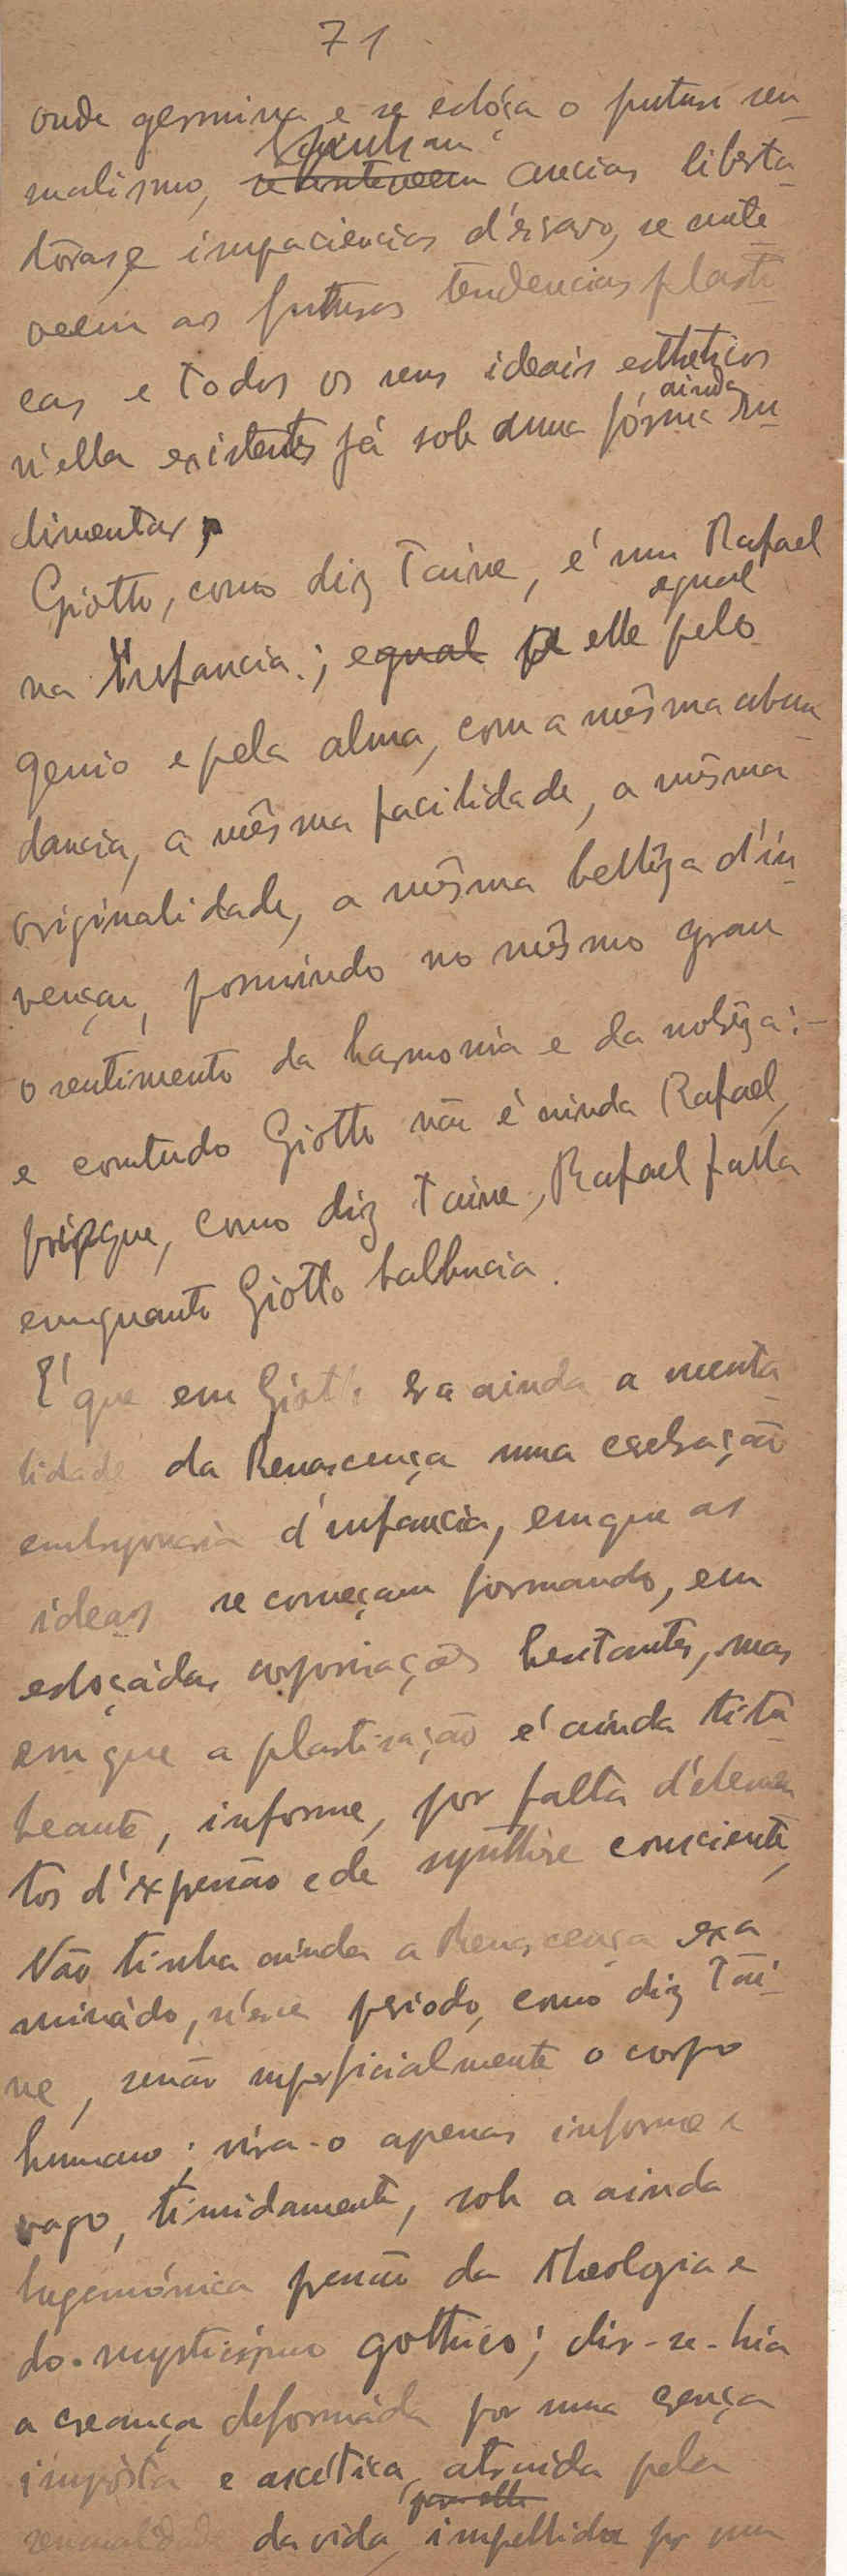 71
onde germina e se esbóça o futuro sen-
sualismo, se anteveem ancias liberta-
dôras, e impaciencias d'escravo, se ante-
veem as futuras tendencias plasti-
cas e todos os seus ideais estheticos
ainda
n'ella existentes já sob uma fórma ru-
dimentar,
Giotto, como diz Taine, é um Rafael
egual
na infancia; egual elle pelo
genio e pela alma, com a mêsma abun-
dancia, a mêsma facilidade, a mêsma
originalidade, a mêsma bellêza d'in-
venção, possuindo no mêsmo grau
o sentimento da harmonia e da nobrêza:-
e comtudo Giotto não é ainda Rafael,
porque, como diz Taine, Rafael falla
emquanto Giotto balbucia.
E' que em Giotto era ainda a menta-
lidade da Renascença uma cerebração
embryonaria d'infancia, em que as
ideas se começam formando, em
esboçádas corporisações hesitantes, mas
em que a plastisação é ainda titu-
beante, informe, por falta d'elemen-
tos d'expressão e de synthese consciente,
Não tinha ainda a Renascença exa-
minádo, n'esse periodo, como diz Tai-
ne, senão superficialmente o corpo
humano; vira-o apenas informe e
vago, timidamente, sob a ainda
hegemónica pressão da theologia e
do mysticismo gothico; dir-se-hia
a creança deformáda por uma crença
impósta e ascética, atraida pela
por elle
sensualidade da vida, impellida por uma